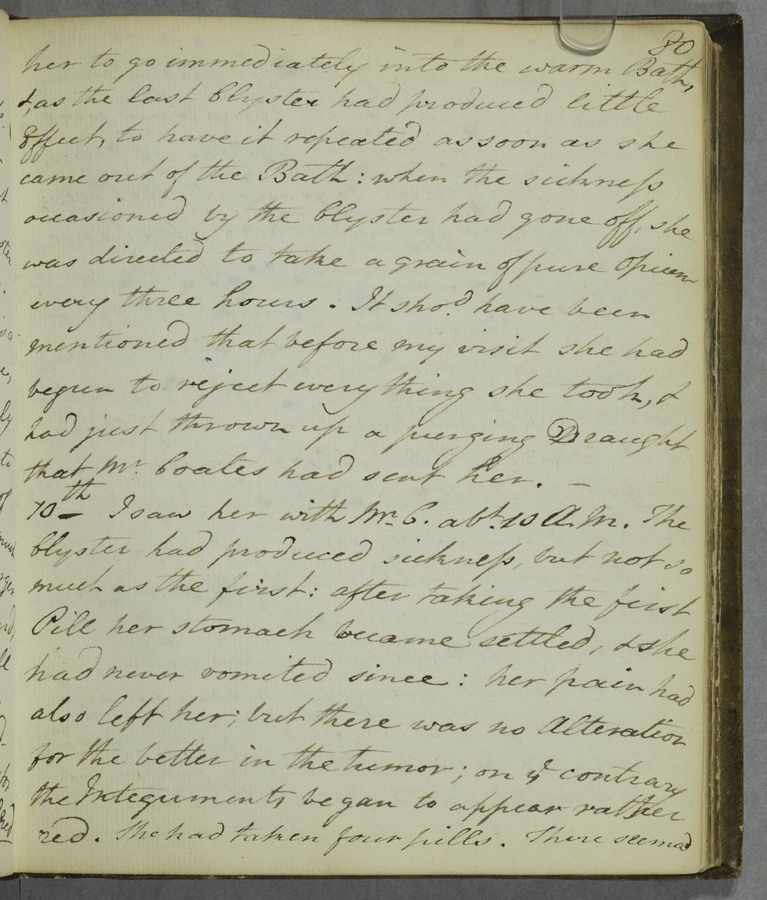 80
her to go immediately into the warm Bath,
&, as the last Clyster had produced little
Effect, to have it repeated as soon as she
came out of the Bath: when the sickness
occasioned by the Clyster had gone off, she
was directed to take a grain of pure Opium
every three hours. It sho.d have been
mentioned that before my visit she had
begun to reject every thing she took, &
had just thrown up a purging Draught
that Mr. Coates had sent her. —
10th I saw her with Mr. C. abt. 10 A.M. The
Clyster had produced sickness, but not so
much as the first: after taking the first
Pill her stomach became settled, & she
had never vomited since: her pain had
also left her; but there was no Alteration
for the better in the tumor; on ye contrary
the Integuments began to appear rather
red. She had taken four pills. There seemed